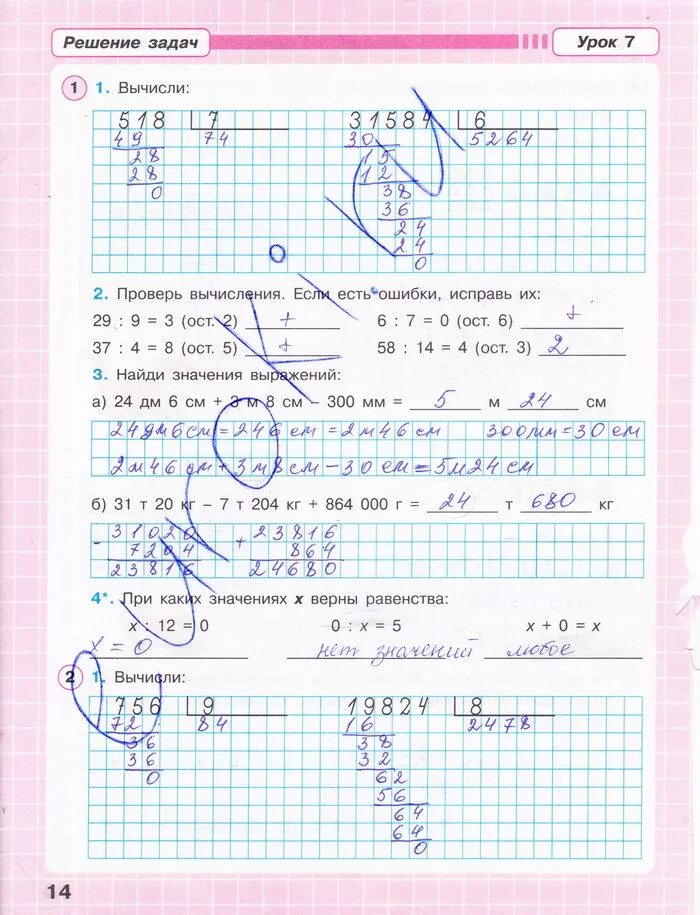 Решение задач
Урок 7
1 1. Вычисли:
518 7 31584 6
49 74 30 5264
28 15
28 12
0 38
36
24
24
0
2. Проверь вычисления. Если есть ошибки, исправь их:
29 : 9 = 3 (ост. 2) + 6 : 7 = 0 (ост. 6) +
37 : 4 = 8 (ост. 5) + 58 : 14 = 4 (ост. 3) 2
3. Найди значения выражений:
а) 24 дм 6 см + 3 м 8 см – 300 мм = 5 м 24 см
24дм6см = 246 см = 2м46см 300мм = 30 см
2м46см + 3м8см – 30 см = 5м24см
б) 31 т 20 кг – 7 т 204 кг + 864 000 г = 24 т 680 кг
- 31020 + 23816
7204 864
23816 24680
4*. При каких значениях x верны равенства:
x : 12 = 0 0 : x = 5 x + 0 = x
x = 0 нет значений любое
2 1. Вычисли:
756 9 19824 8
72 84 16 2478
36 38
36 32
0 62
56
64
64
0
14